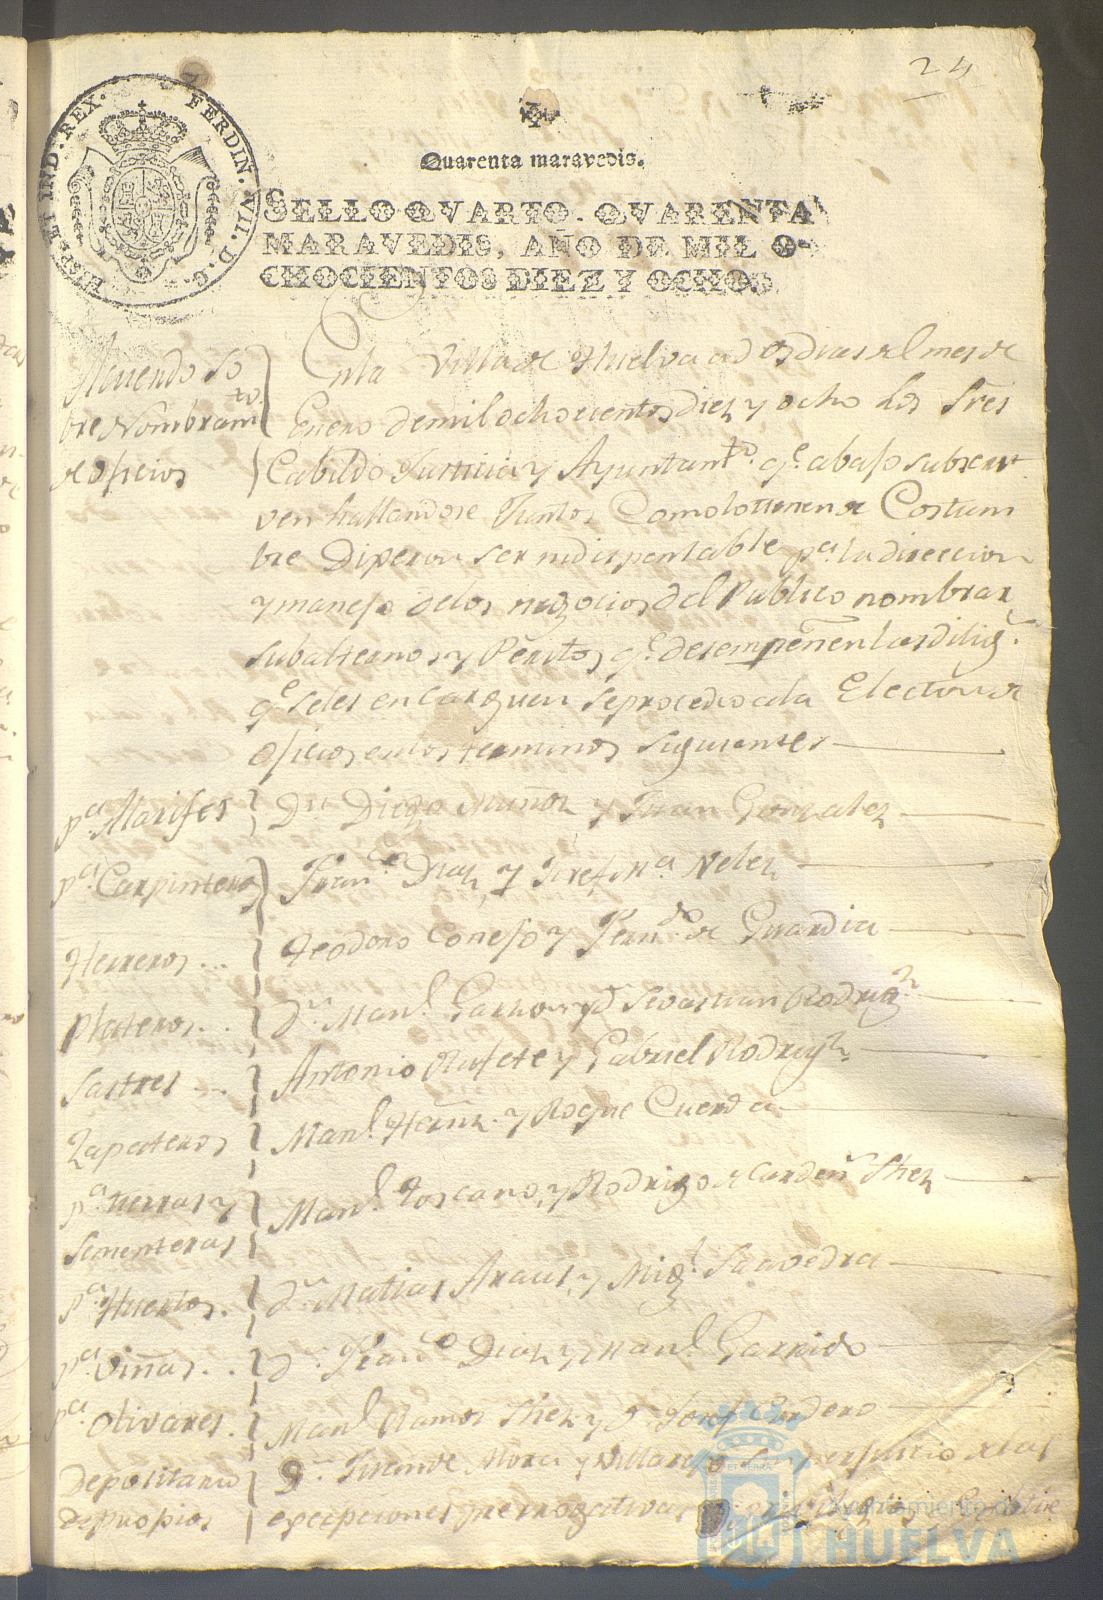 24
HISP. ET IND. REX. FERDIN. VII. D. G.
Quarenta maravedis.
SELLO QVARTO. QVARENTA
MARAVEDIS, AÑO DE MIL O-
CHOCIENTOS DIEZ Y OCHO.
so
bre Nombramto
de oficios
Enla Villa de Huelva a dos dias del mes de
Enero de mil ochocientos diez y ocho Los Sres
Cabildo Justicia y Ayuntamto. qe. abajo subscri
ven hallandose Juntos Como lo tienen de Costum
bre Dijeron ser indispensable pa. la direccion
y manejo delos negocios del Publico nombrar
subalternos y Peritos qe. desempeñen las dilig.s
qe seles encarguen se procedio ala Election de
oficios enlos terminos siguientes
pa. Alarifes Dn. Diego Muñoz y Juan Gonzalez
pa. Carpinteros Franco. Diaz y Josef Ma. Velez
Herreros Teodoro Conejo y Ferndo. de Guardia
Plateros Dn. Manl. y Dn Sevastian Rodrigz
Sastres Antonio Rufete y Gabriel Rodrigz.
Zapateros Manl. Hernz. y Roque Cuerda
pa. tierras y Manl. Toscano, y Rodrigo de Cardens. Shez
Sementeras
pa. Huertos. Dn. Matias Araus, y Migl. Saavedra
pa. Viñas. Dn. Franco Diaz y Manl. Garrido
pa. Olivares. Manl. Ramos Shez y Dn. Josef Cordero
Depositario Dn. Vicente Mora y Villarejo sin perjuicio de las
de propios excepciones prerrogativas y privilegios
Ayuntamiento de
HUELVA